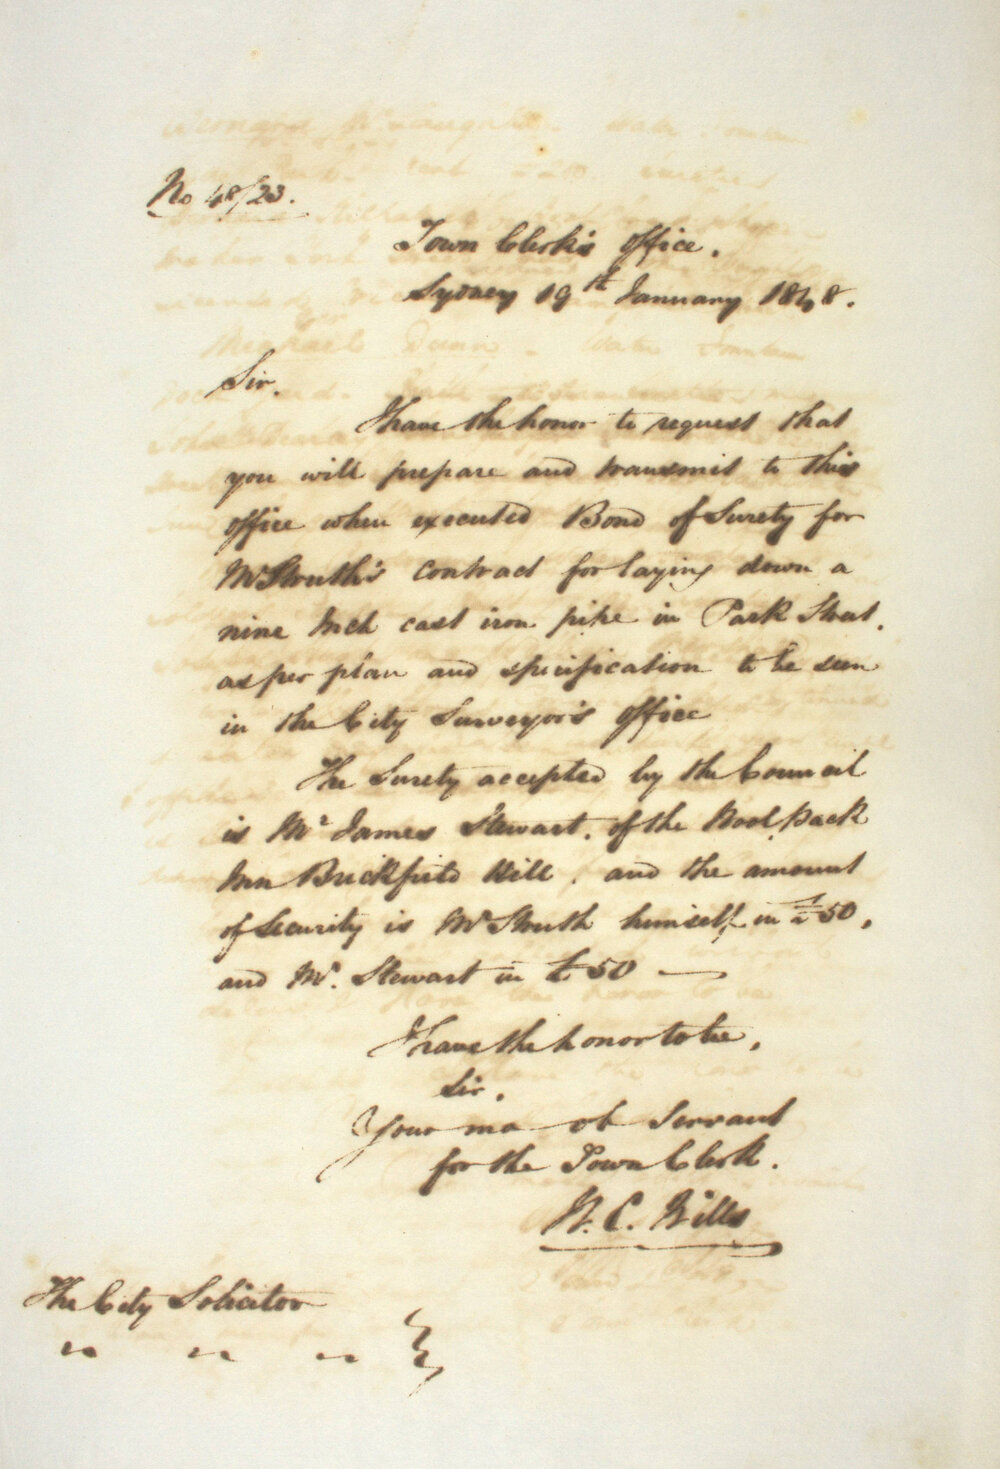 No 48/23.
Town Clerk's Office.
Sydney 19th January 1848.
Sir,
I have the honor to request that
you will prepare and transmit to this
office when executed Bond of Surety for
Mr Struth's contract for laying down a
nine Inch cast iron pipe in Park Street.
as per plan and specification to be seen
in the City Surveyor's office
The Surety accepted by the Council
is Mr James Stewart, of the Wool pack
Inn Brickfield Hill, and the amount
of Security is Mr Struth himself, in £50,
and Mr. Stewart in £50 —
I have the honor to be,
Sir,
Your mo ob Servant
for the Town Clerk.
W. C. Wills
The City Solicitor
" " "